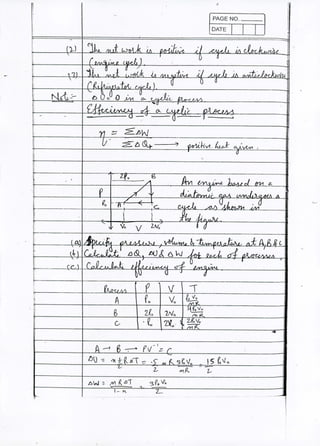 PAGE NO
DATE
(2) The net work is positive if cycle is clockwise
(engine cycle).
(3) The net work is negative if cycle is anticlockwise
(Refrigerator cycle).
Note:- ΔU = 0 in a cyclic process
Efficiency of a cyclic process
η = ΣΔW
ΣΔQ+ → positive heat given.
2P₀ B
P
P₀ A C
V₀ V 2V₀
An engine based on a
diatomic gas undergoes a
cycle as shown in
the figure.
(a) Specify pressure, volume & temperature at A, B & C
(b) Calculate ΔQ, ΔU & ΔW for each of processes.
(c) Calculate efficiency of engine.
Process P V T
A P₀ V₀ P₀V₀/nR
B 2P₀ 2V₀ 4P₀V₀/nR
C P₀ 2V₀ 2P₀V₀/nR
A → B → PV⁻¹ = C
ΔU = n f/2 RΔT = 5/2 nR 3P₀V₀/nR = 15/2 P₀V₀
ΔW = nRΔT/1-n = 3P₀V₀/2